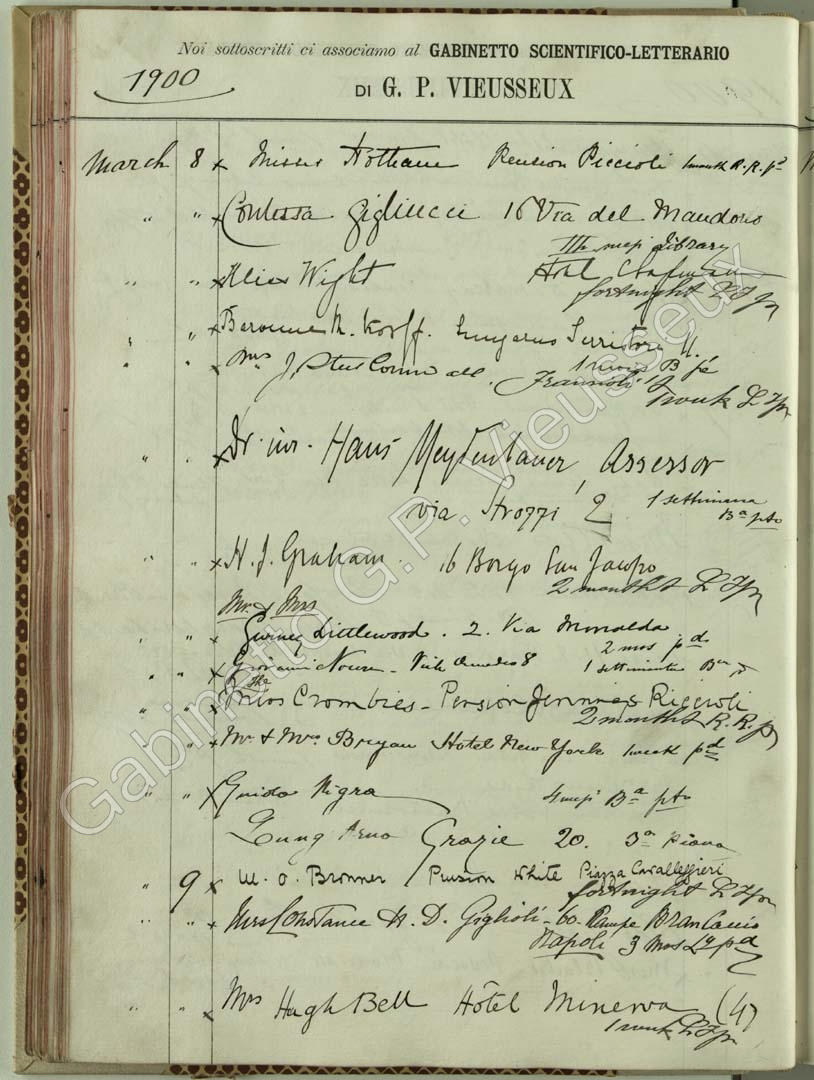 Noi sottoscritti ci associamo al GABINETTO SCIENTIFICO-LETTERARIO
1900
DI G. P. VIEUSSEUX
March 8 x Misses Pension Piccioli 1 month R. R. pd
" " x Contessa Gigliucci 16 Via del Mandorlo
III mesi Library
" " x Alice Wight Hotel
fortnight L Ty
" " x Baronne M. Korff. Lungarno Serristori 11.
1 mois B
" " x Mrs J.
1 week L Ty
" " x Dr. iur. Hans Meydenbauer, Assessor
via Strozzi 2 1 settimana
Ba pto
" " x H. J. Graham. 16 Borgo San Jacopo
2 months L Ty
Mr. & Mrs
" " x Gurney Littlewood. 2. Via Montalda
2 mos pd
" " x Giovanni - Viale Amedeo 8 1 settimana
The
" " x Miss Crombies - Pension Jennings Riccioli
2 months R. R.
" " x Mr & Mrs Bryan Hotel New York 1 week pd
" " x Guido Nigra 4 mesi Ba pto
Lung Arno Grazie 20. 3° Piano
" 9 x M. O. Bronner Pension White Piazza Cavalleggieri
fortnight L Ty
" " x Mrs Constance H. D. Giglioli - 60. Rampe Brancaccio
Napoli 3 mos Ly pd
" " x Mrs Hugh Bell Hôtel Minerva (4)
1 week L Ty
Gabinetto G. P. Vieusseux